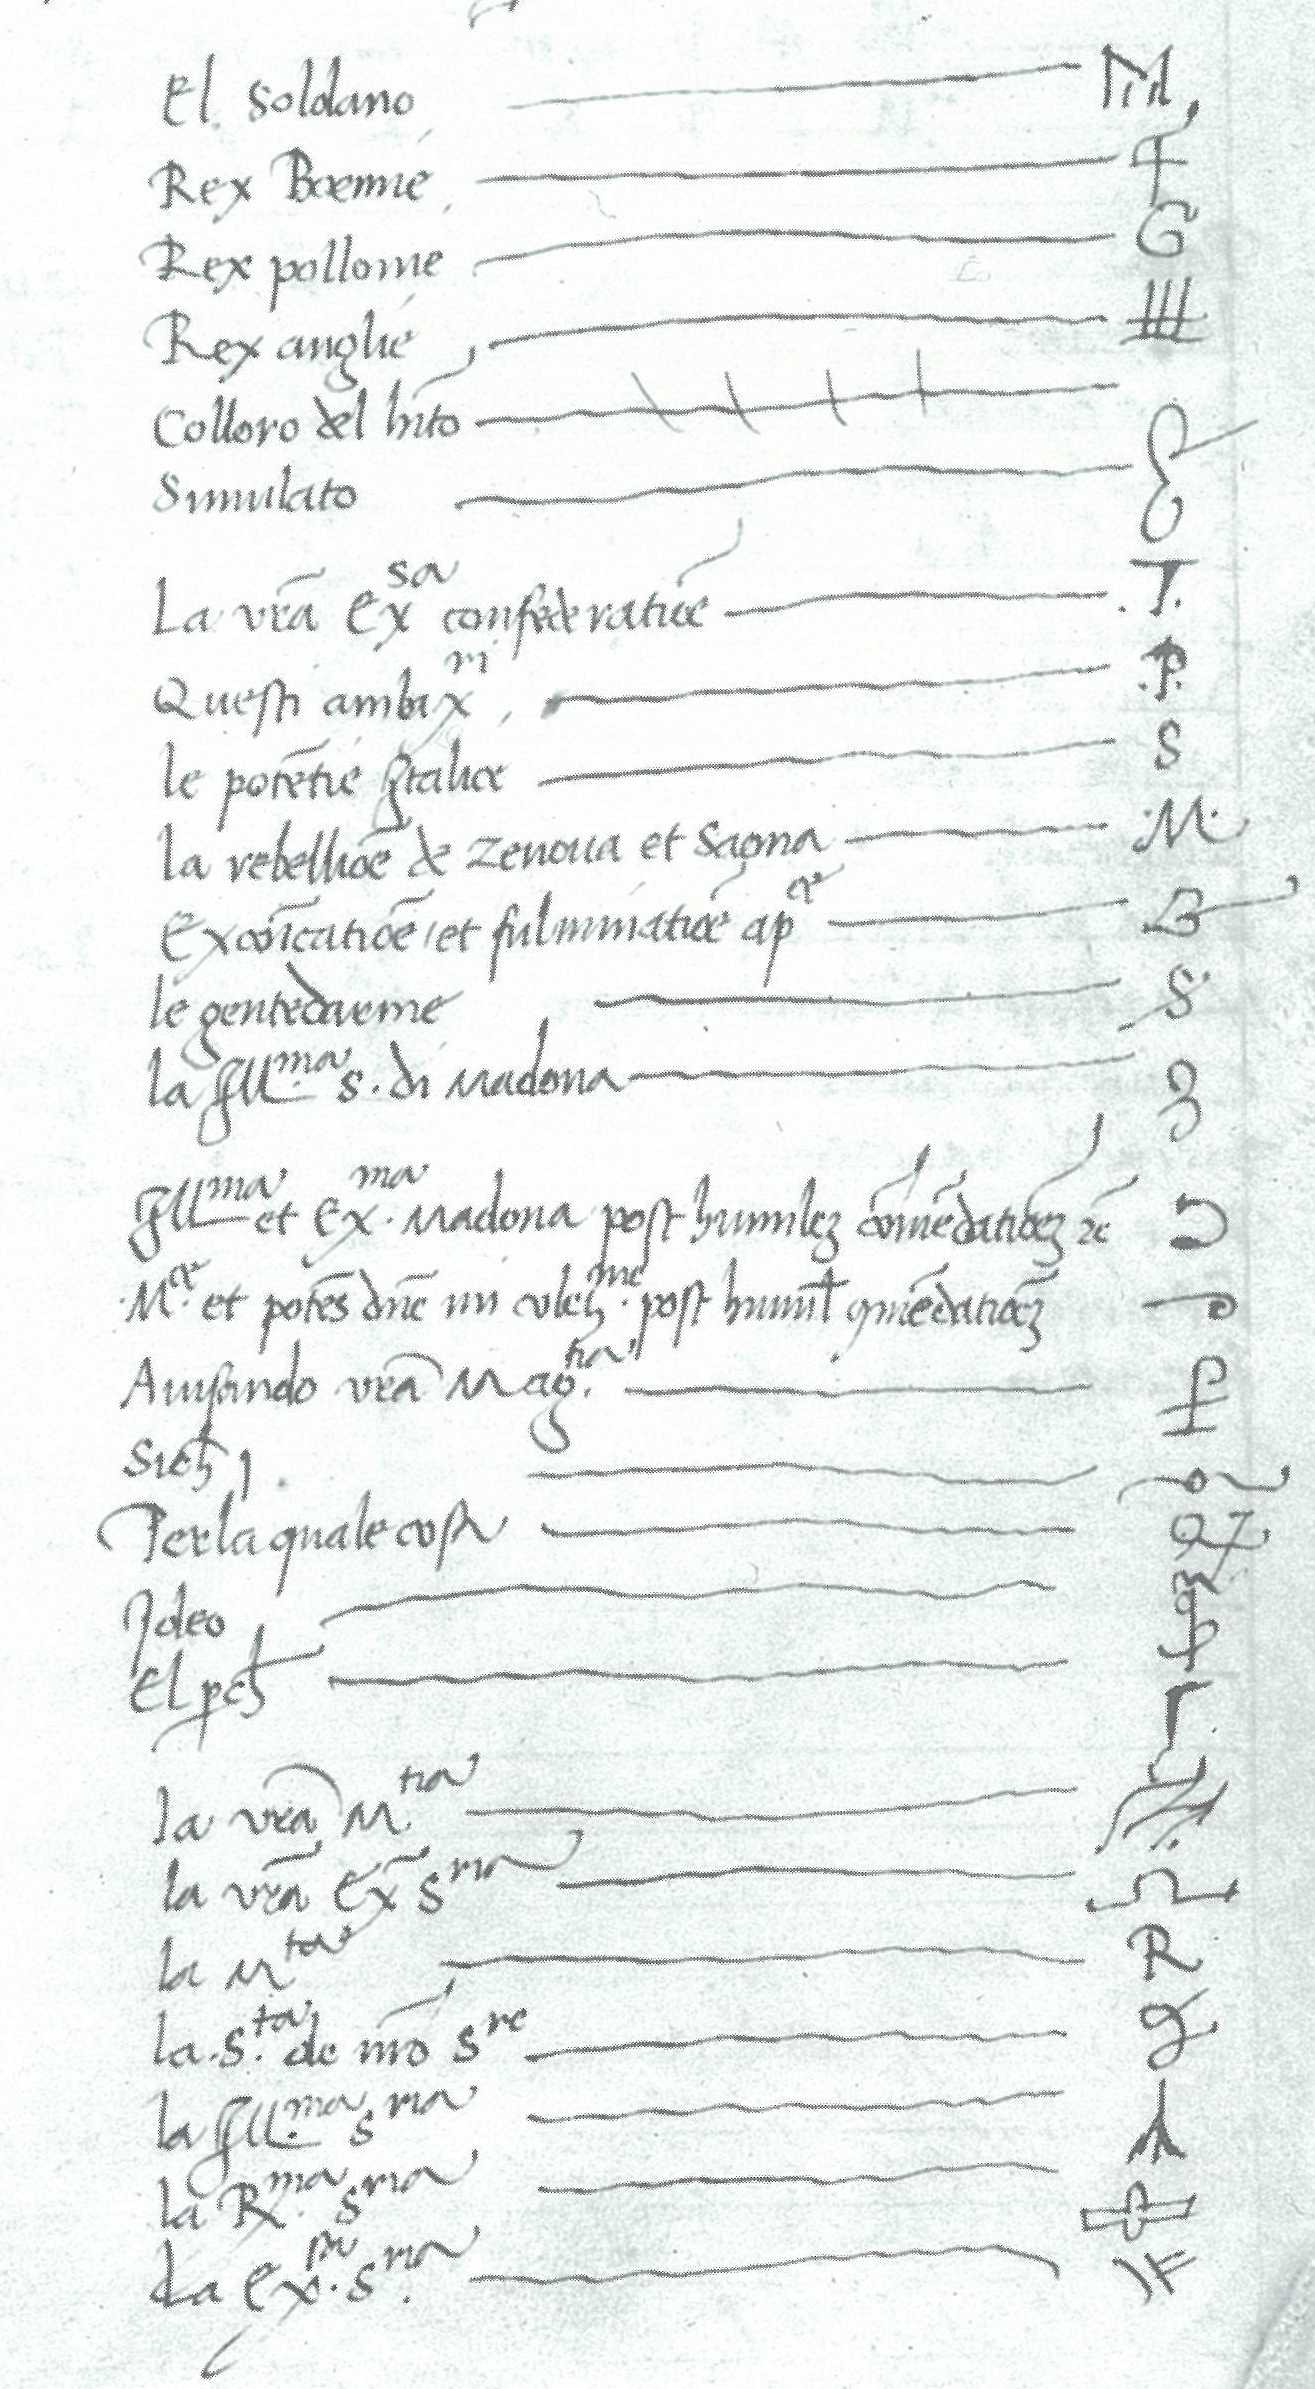 El Soldano M,
Rex Boemie
Rex pollonie G
Rex anglie
Colloro del hito
Simulato
La vrã Ex sa confederatiõe .T.
Questi ambax ri .P.
le potẽtie Italice S
la rebelliõe de Zenoua et Saona .M.
Excõicatiõe et fulminatiõe ap ce B
le gente darme S
la Ill. ma S. di Madona 3
Ill ma et Ex. ma Madona post humilez cõmẽdatiõez zc
.M. ce et potẽs dñe mi colen. me post humil qmẽdatiõez
Auisando vrã Mag. tia
Sich
Per la quale cosa
Ideo
El pch
la vrã M. tia
la vrã Ex S ria
la M ta R
la .S. ta de nro S re
la Ill. ma S ria
la R. ma S ria
La Ex. S ria